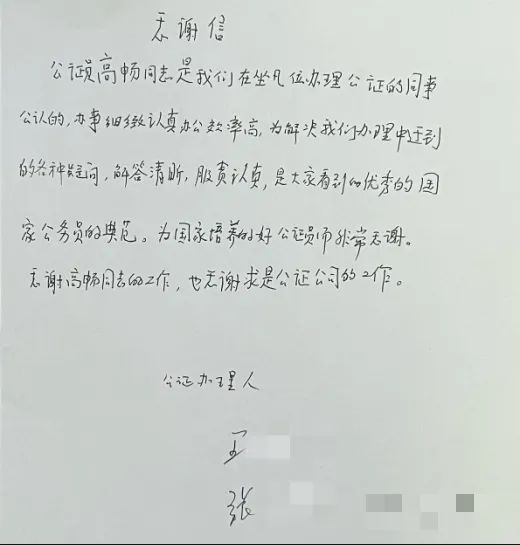 感谢信
公证员高畅同志是我们在坐几位办理公证的同事
公认的,办事细致认真办公效率高,为解决我们办理中迂到
的各种疑问,解答清晰,服责认真,是大家看到的优秀的国
家公务员的典范。为国家培养的好公证员而非常感谢。
感谢高畅同志的工作,也感谢求是公证公司的工作。
公证办理人
王
张